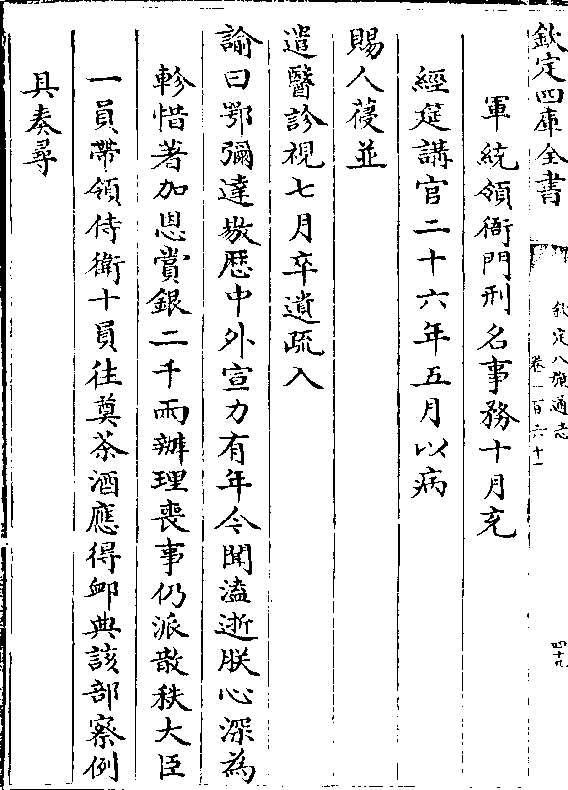 欽定四庫全書
欽定八旗通志
卷一百六十一
四十九
軍統領衙門刑名事務十月充
經筵講官二十六年五月以病
賜人葠並
遣醫診視七月卒遺疏入
諭曰鄂彌達敭歴中外宣力有年今聞溘逝朕心深為
軫惜著加恩賞銀二千兩辦理喪事仍派散秩大臣
一員帶領侍衛十員往奠茶酒應得卹典該部察例
具奏尋